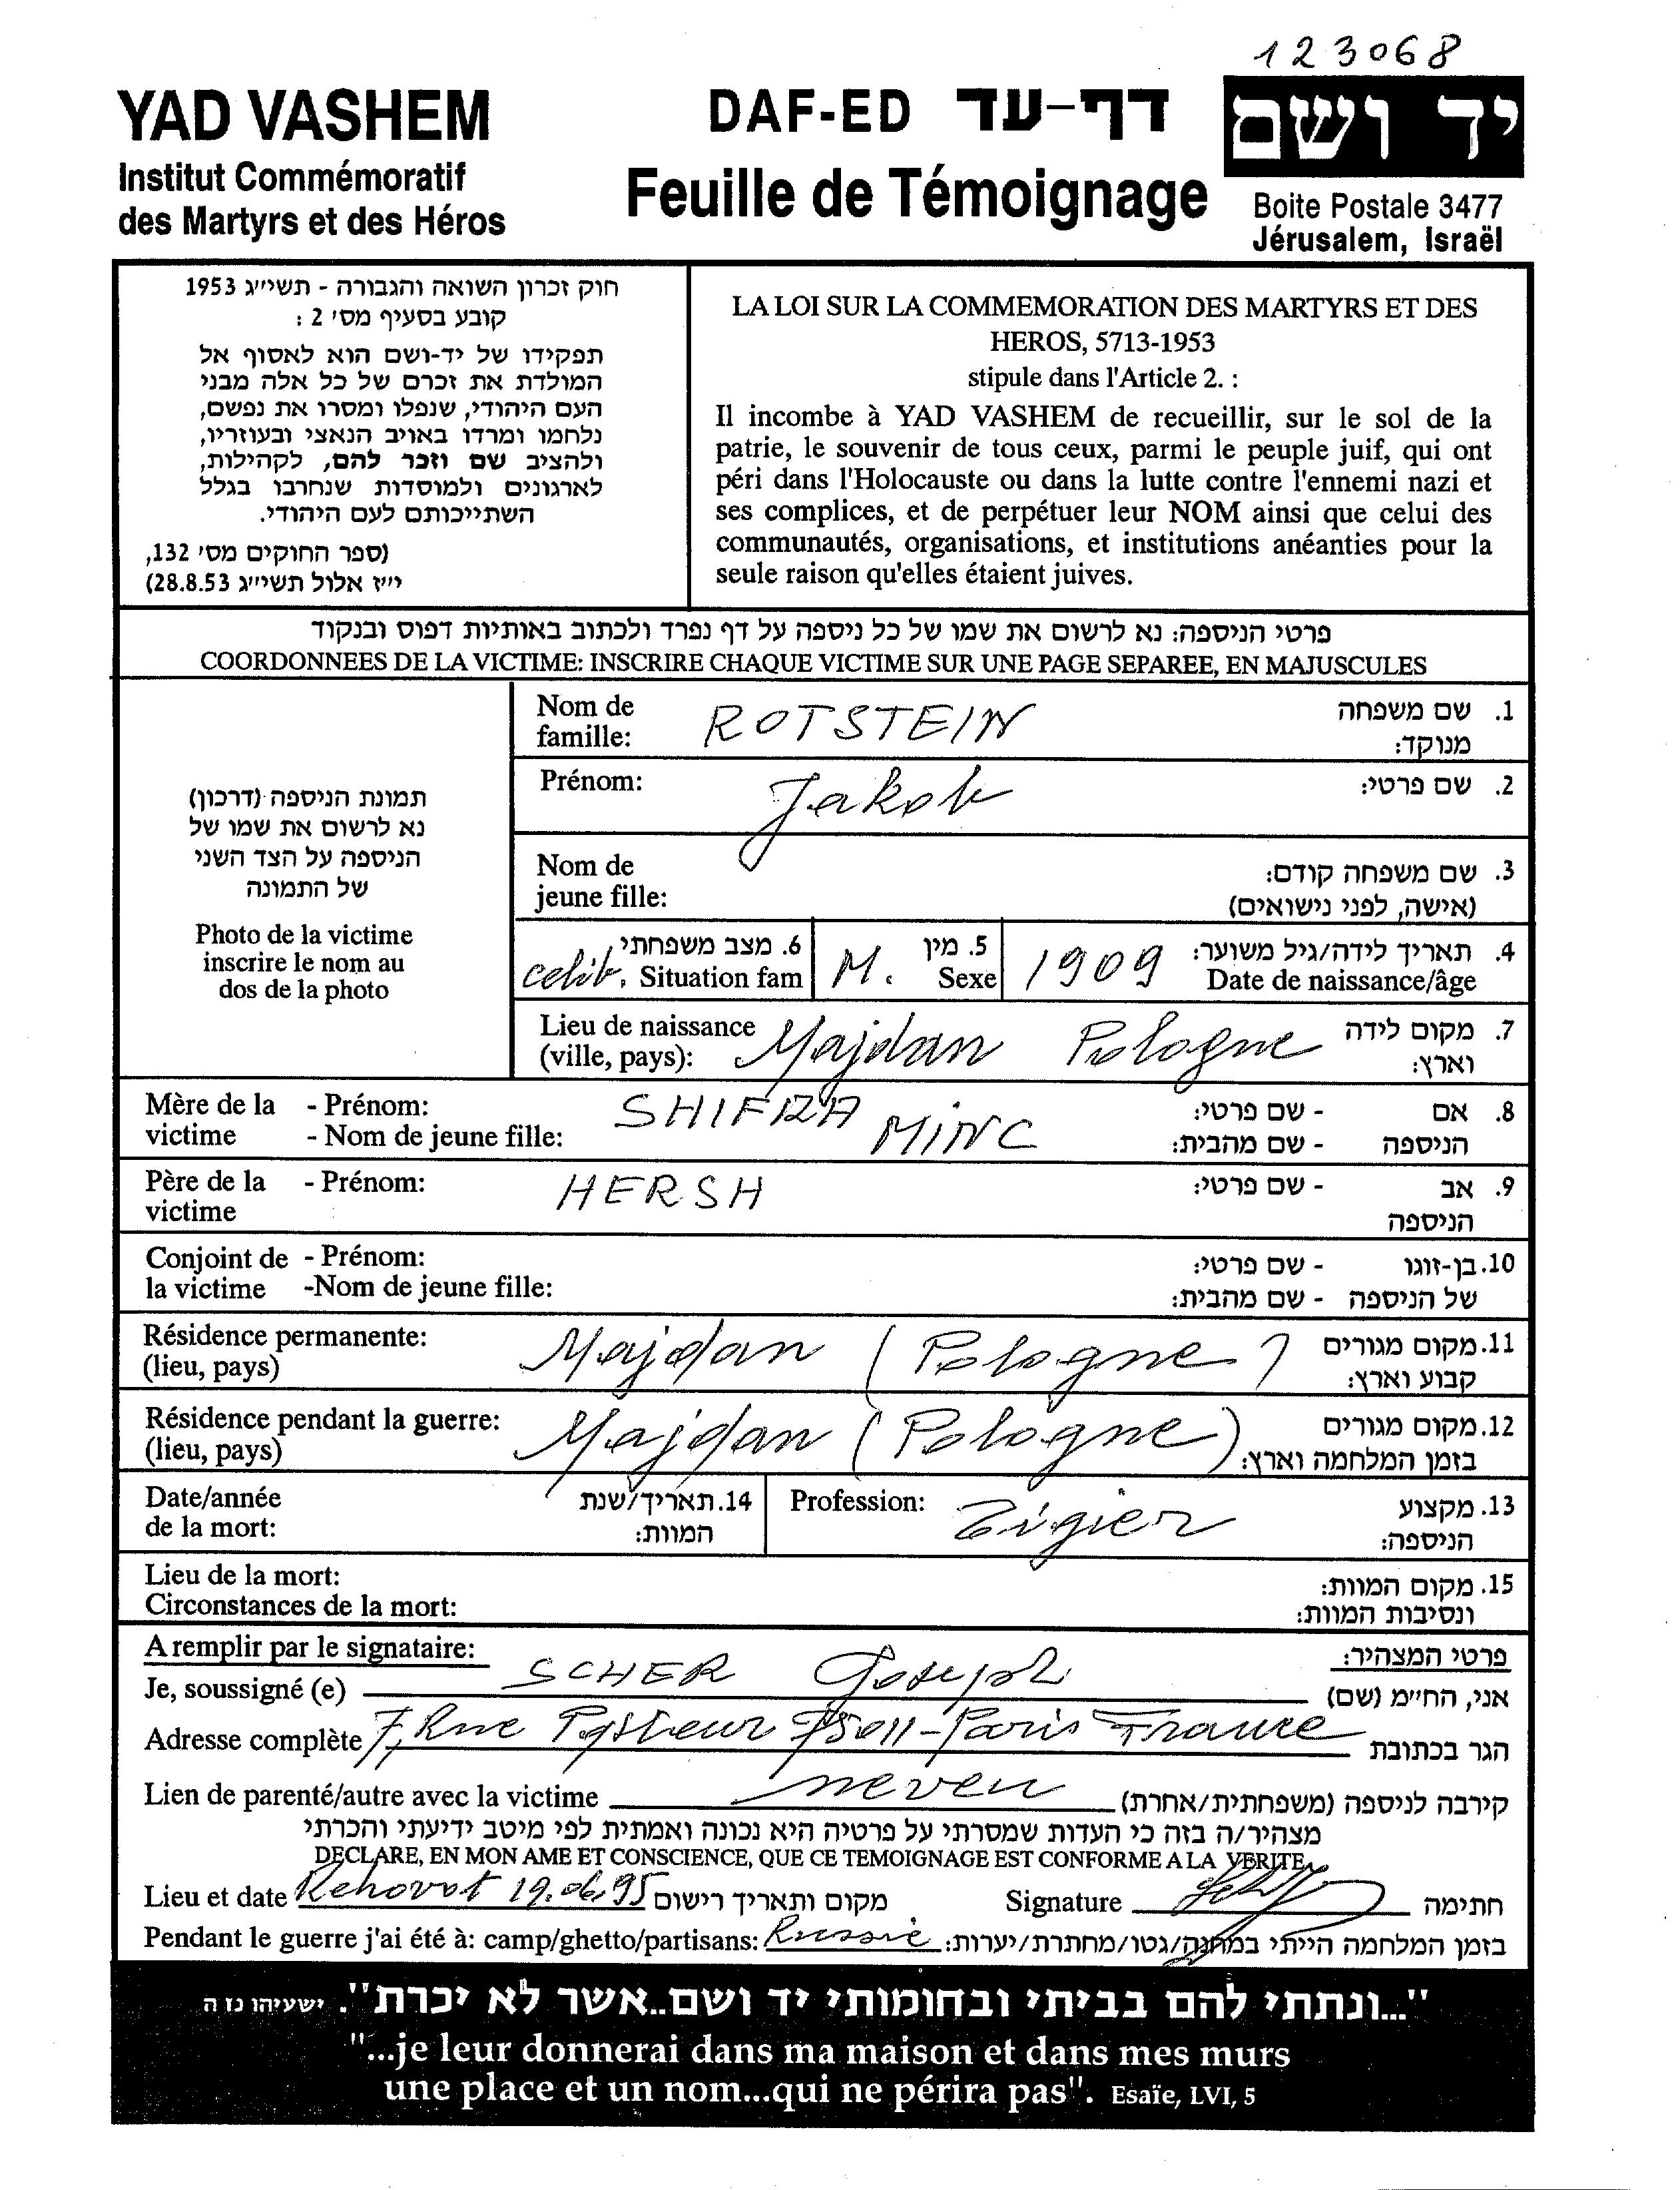 123068
YAD VASHEM
Institut Commémoratif
des Martyrs et des Héros
DAF-ED דף-עד
Feuille de Témoignage
יד ושם
Boite Postale 3477
Jérusalem, Israël
חוק זכרון השואה והגבורה - תשי״ג 1953
קובע בסעיף מס׳ 2 :
תפקידו של יד-ושם הוא לאסוף אל
המולדת את זכרם של כל אלה מבני
העם היהודי, שנפלו ומסרו את נפשם,
נלחמו ומרדו באויב הנאצי ובעוזריו,
ולהציב שם וזכר להם, לקהילות,
לארגונים ולמוסדות שנחרבו בגלל
השתייכותם לעם היהודי.
(ספר החוקים מס׳ 132,
י״ז אלול תשי״ג 28.8.53)
LA LOI SUR LA COMMEMORATION DES MARTYRS ET DES
HEROS, 5713-1953
stipule dans l'Article 2. :
Il incombe à YAD VASHEM de recueillir, sur le sol de la
patrie, le souvenir de tous ceux, parmi le peuple juif, qui ont
péri dans l'Holocauste ou dans la lutte contre l'ennemi nazi et
ses complices, et de perpétuer leur NOM ainsi que celui des
communautés, organisations, et institutions anéanties pour la
seule raison qu'elles étaient juives.
פרטי הניספה: נא לרשום את שמו של כל ניספה על דף נפרד ולכתוב באותיות דפוס ובנקוד
COORDONNEES DE LA VICTIME: INSCRIRE CHAQUE VICTIME SUR UNE PAGE SEPAREE, EN MAJUSCULES
תמונת הניספה (דרכון)
נא לרשום את שמו של
הניספה על הצד השני
של התמונה
Photo de la victime
inscrire le nom au
dos de la photo
Nom de ROTSTEIN 1. שם משפחה
famille: מנוקד:
Prénom: Jakob 2. שם פרטי:
Nom de 3. שם משפחה קודם:
jeune fille: (אישה, לפני נישואים)
6. מצב משפחתי 5. מין 4. תאריך לידה/גיל משוער:
celib. Situation fam M. Sexe 1909 Date de naissance/âge
Lieu de naissance Majdan Pologne 7. מקום לידה
(ville, pays): וארץ:
Mère de la - Prénom: SHIFRA - שם פרטי: 8. אם
victime - Nom de jeune fille: MINC - שם מהבית: הניספה
Père de la - Prénom: HERSH - שם פרטי: 9. אב
victime הניספה
Conjoint de - Prénom: - שם פרטי: 10. בן-זוגו
la victime -Nom de jeune fille: - שם מהבית: של הניספה
Résidence permanente: Majdan (Pologne) 11. מקום מגורים
(lieu, pays) קבוע וארץ:
Résidence pendant la guerre: Majdan (Pologne) 12. מקום מגורים
(lieu, pays) בזמן המלחמה וארץ:
Date/année 14. תאריך/שנת Profession: 13. מקצוע
de la mort: המוות: Tigier הניספה:
Lieu de la mort: 15. מקום המוות:
Circonstances de la mort: ונסיבות המוות:
A remplir par le signataire: פרטי המצהיר:
Je, soussigné (e) SCHER Joseph אני, הח״מ (שם)
Adresse complète 7, Rue Pasteur 75011-Paris France הגר בכתובת
Lien de parenté/autre avec la victime neveu קירבה לניספה (משפחתית/אחרת)
מצהיר/ה בזה כי העדות שמסרתי על פרטיה היא נכונה ואמתית לפי מיטב ידיעתי והכרתי
DECLARE, EN MON AME ET CONSCIENCE, QUE CE TEMOIGNAGE EST CONFORME A LA VERITE
Lieu et date Rehovot 19.06.95 מקום ותאריך רישום Signature חתימה
Pendant le guerre j'ai été à: camp/ghetto/partisans: Russie בזמן המלחמה הייתי במחנה/גטו/מחתרת/יערות:
"...ונתתי להם בביתי ובחומותי יד ושם..אשר לא יכרת". ישעיהו נו ה
"...je leur donnerai dans ma maison et dans mes murs
une place et un nom...qui ne périra pas". Esaïe, LVI, 5